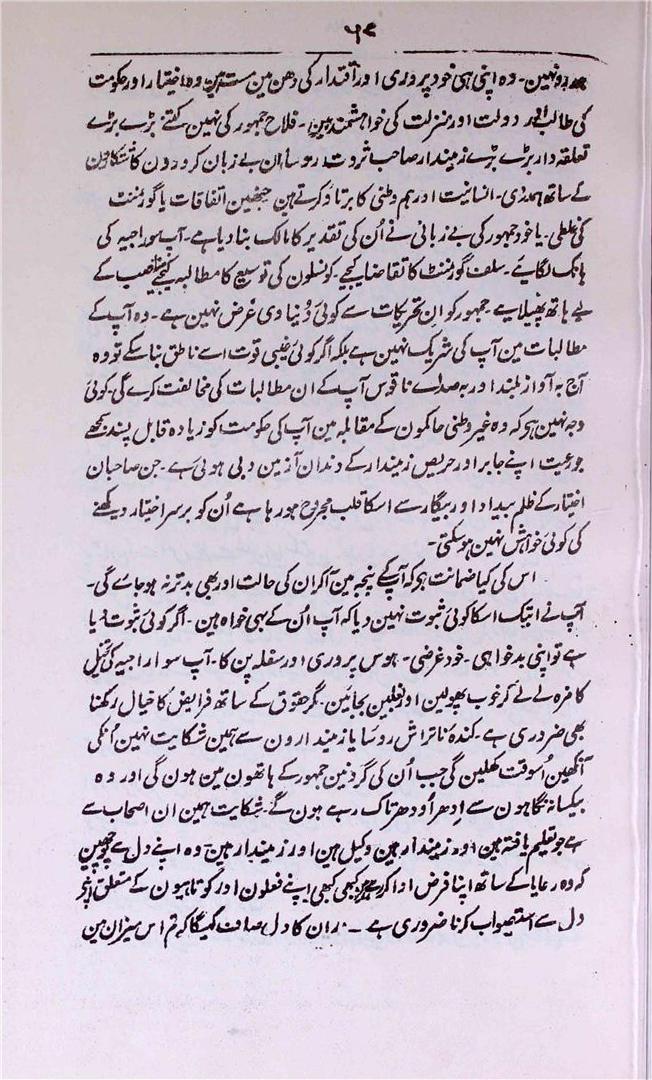 ۵۶
ہمدرد نہین۔ وہ اپنی ہی خود پروری اور اقتدار کی دھن مین مست ہین وہ اختیار اور حکومت
کی طالب اور دولت اور منزلت کی خواہشمند ہین۔ فلاح جمہور کی نہین کتنے بڑے بڑے
تعلقہ دار بڑے بڑے زمیندار صاحب ثروت روسا ان بے زبان کرورون کاشتکارون
کے ساتھ ہمدردی۔ انسانیت اور ہم وطنی کا برتاؤ کرتے ہین جنھین اتفاقات یا گورنمنٹ
کی غلطی۔ یا خود جمہور کی بے زبانی نے اُن کی تقدیر کا مالک بنا دیا ہے۔ آپ سوراجیہ کی
ہانک لگایے۔ سلف گورنمنٹ کا تقاضا کیجے۔ کونسلون کی توسیع کا مطالبہ کیجے مناصب کے
لیے ہاتھ پھیلایے۔ جمہور کو ان تحریکات سے کوئی دُنیا وی غرض نہین ہے۔ وہ آپ کے
مطالبات مین آپ کی شریک نہین ہے بلکہ اگر کوئی غیبی قوت اسے ناطق بنا سکے تو وہ
آج بہ آواز بلند اور بہ صدائے ناقوس آپ کے ان مطالبات کی مخالفت کرے گی۔ کوئی
وجہ نہین ہو کہ وہ غیر وطنی حاکمون کے مقابلہ مین آپ کی حکومت کو زیادہ قابل پسند سمجھے
جو رعیت اپنے جابر اور حریص زمیندار کے دندان آز مین دبی ہوئی ہے۔ جن صاحبان
اختیار کے ظلم بیداد اور بیگار سے اسکا قلب مجروح ہو رہا ہے اُن کو برسر اختیار دیکھنے
کی کوئی خواہش نہین ہو سکتی۔
اس کی کیا ضمانت ہو کہ آپ کے پنجہ مین آکر ان کی حالت اور بھی بدتر نہ ہو جاے گی۔
آپ نے ابتک اسکا کوئی ثبوت نہین دیا کہ آپ اُن کے بہی خواہ ہین۔ اگر کوئی ثبوت دیا
ہے تو اپنی بدخواہی۔ خود غرضی۔ ہوس پروری اور سفلہ پن کا۔ آپ سوا راجیہ کی تخیل
کا مزہ لے لے کر خوب پھولین اور بغلین بجائین۔ مگر حقوق کے ساتھ فرایض کا خیال رکھنا
بھی ضروری ہے۔ کندۂ ناتراش روسا یا زمیندارون سے ہمین شکایت نہین اُنکی
آنکھین اسوقت کھلین گی جب اُن کی گردنین جمہور کے ہاتھون مین ہون گی اور وہ
بیکسانہ نگاہون سے اِدھر اُودھر تاک رہے ہون گے۔ شکایت ہمین ان اصحاب سے
ہے جو تعلیم یافتہ ہین اور زمیندار ہین وکیل ہین اور زمیندار ہین۔ وہ اپنے دل سے پوچھین
کہ وہ رعایا کے ساتھ اپنا فرض ادا کر رہے ہین کبھی کبھی اپنے فعلون اور کوتاہیون کے متعلق اپنے
دل سے استصواب کرنا ضروری ہے۔ ان کا دل صاف کہیگا کہ تم اس میزان مین